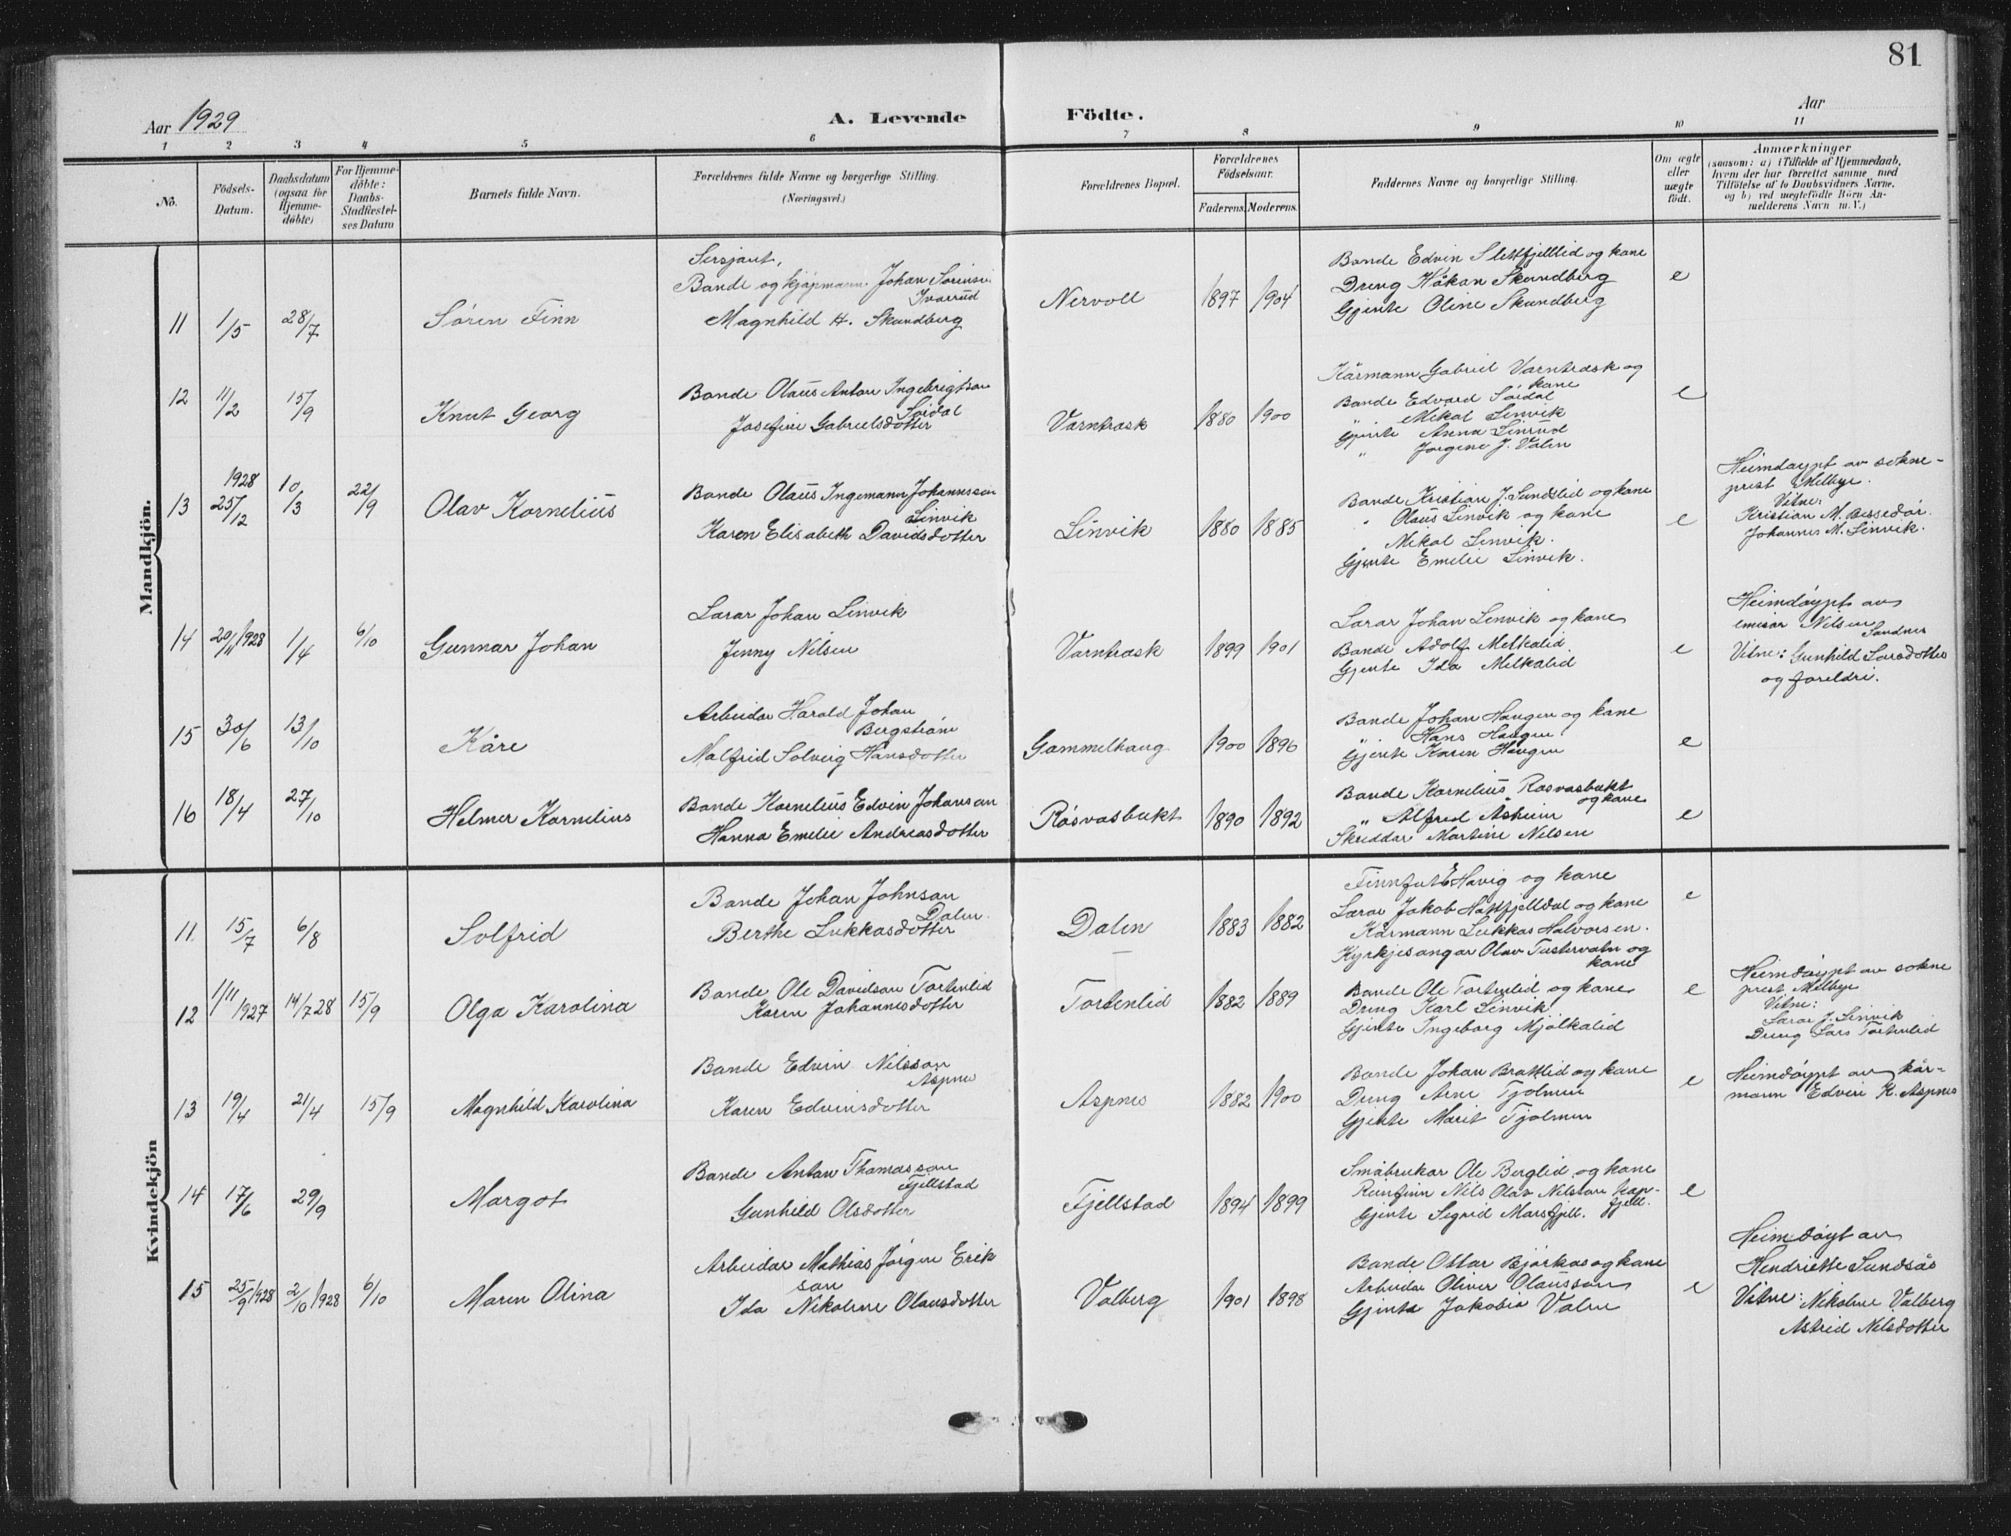 81
Aar 1929
A. Levende Födte.
Aar
1 2 3 4 5 6 7 8 9 10 11
No.
Födsels-Datum.
Daabsdatum (ogsaa for Hjemme-döbte)
For Hjemme-döbte: Daabs-Stadfæstel-ses Datum
Barnets fulde Navn.
Forældrenes fulde Navne og borgerlige Stilling. (Næringsvei.)
Forældrenes Bopæl.
Forældrenes Födselsaar.
Faderens. Moderens.
Faddernes Navne og borgerlige Stilling.
Om ægte eller uægte født.
Anmærkninger
(saasom: a) i Tilfælde af Hjemmedaab,
hvem der har forrettet samme, med
Tilföielse af to Daabsvidners Navne,
og b) ved uægtefödte Börn An-
melderens Navn m. V.)
Mandkjön.
11 1/5 28/7 Søren Finn
Sersjant,
Bonde og kjøpmann Johan Sørensen
Ivarrud
Magnhild H. Skundberg
Nervoll 1897 1904
Bonde Edvin Slettfjellid og kone
Dreng Håkon Skundberg
Gjente Oline Skundberg
e
12 11/2 15/9 Knut Georg
Bonde Olaus Anton Ingebrigtson
Søidal
Josefine Gabrielsdotter
Varntresk 1880 1900
Kårmann Gabriel Varntresk og
kone
Bonde Edvard Søidal
" Mikal Linvik
Gjente Anna Linrud
" Jorgine J. Valen
e
13 1928 25/12 10/3 22/9 Olav Kornelius
Bonde Olaus Ingemann Johannessen
Linvik
Karen Elisabeth Davidsdotter
Linvik 1880 1885
Bonde Kristian J. Sundslid og kone
" Olaus Linvik og kone
" Mikal Linvik.
Gjente Emilie Linvik.
e
Heimdøypt av sokne-
prest Melbye.
Vitne:
Kristian M. Bessedør.
Johannes M. Linvik.
14 29/11 1928 1/4 6/10 Gunnar Johan
Lærar Johan Linvik
Jenny Nilsen
Varntresk 1899 1901
Lærar Johan Linvik og kone
Bonde Adolf Melkalid
Gjente Ida Melkalid
e
Heimdøypt av
emisær Nilsen
Sandnes
Vitne: Gunhild Larsdotter
og foreldri.
15 30/6 13/10 Kåre
Arbeidar Harald Johan
Bergstrøm
Malfrid Solveig Hansdotter
Gammelhaug 1900 1896
Bonde Johan Haugen og kone
" Hans Haugen
Gjente Karen Haugen
e
16 18/4 27/10 Helmer Kornelius
Bonde Kornelius Edvin Johanson
Hanna Emelie Andreasdotter
Røsvasbukt 1890 1892
Bonde Kornelius Røsvasbukt
og kone
" Alfred Åsheim
Skreddar Martine Nilsen
e
Kvindekjön
11 15/7 6/8 Solfrid
Bonde Johan Johnson
Dalen.
Berthe Lukkasdotter
Dalen 1883 1882
Finnfut E Havig og kone
Lærar Jakob Hattfjelldal og kone
Kårmann Lukkas Halvorsen.
Kyrkjesongar Olav Tustervatn og
kone
e
12 1/11 1927 14/7 28 15/9 Olga Karolina
Bonde Ole Davidson Tortenlid
Karen Johannesdotter
Tortenlid 1882 1889
Bonde Ole Tortenlid og kone
Dreng Karl Linvik
Gjente Ingeborg Mjølkalid
e
Heimdøypt av sokne
prest Melbye
Vitne:
Lærar J. Linvik
Dreng Lars Tortenlid
13 19/4 21/4 15/9 Magnhild Karolina
Bonde Edvin Nilsson
Aspnes
Karen Edvinsdotter
Aspnes 1882 1900
Bonde Johan Brattlid og kone
Dreng Arne Tjolmen
Gjente Marit Tjolmen
e
Heimdøypt av kår-
mann Edvin K. Aspnes
14 17/6 29/9 Margot
Bonde Anton Thomasson
Fjellstad
Gunhild Olsdotter
Fjellstad 1894 1899
Småbrukar Ole Berglid og kone
Reinfinn Nils Olav Nilsson Kap-
fjell.
Gjente Sigrid Marsfjell.
e
15 25/9 1928 2/10 1928 6/10 Maren Olina
Arbeidar Mathias Jørgen Erik
son
Ida Nikoline Olausdotter
Valberg 1901 1898
Bonde Ottar Bjørkås og kone
Arbeidar Oliver Olausson
Gjente Jakobia Valen
e
Heimdøypt av
Henriette Sundsås
Vitne: Nikoline Valberg
Astrid Nilsdotter